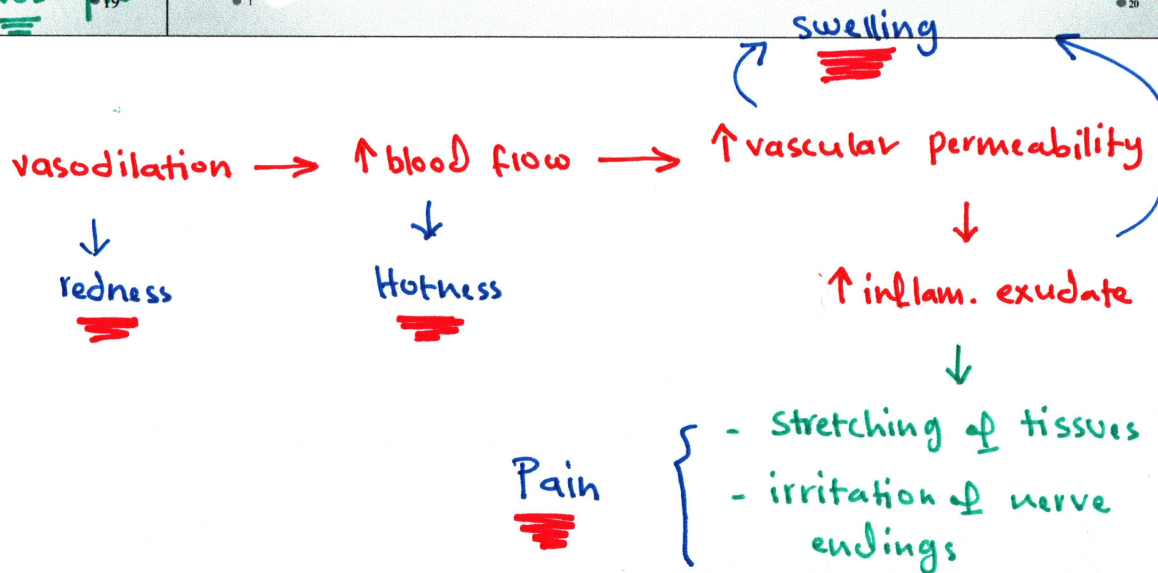 19
1
20
swelling
vasodilation → ↑ blood flow → ↑ vascular permeability
↓ ↓ ↓
redness Hotness ↑ inflam. exudate
↓
- stretching of tissues
Pain { - irritation of nerve
endings